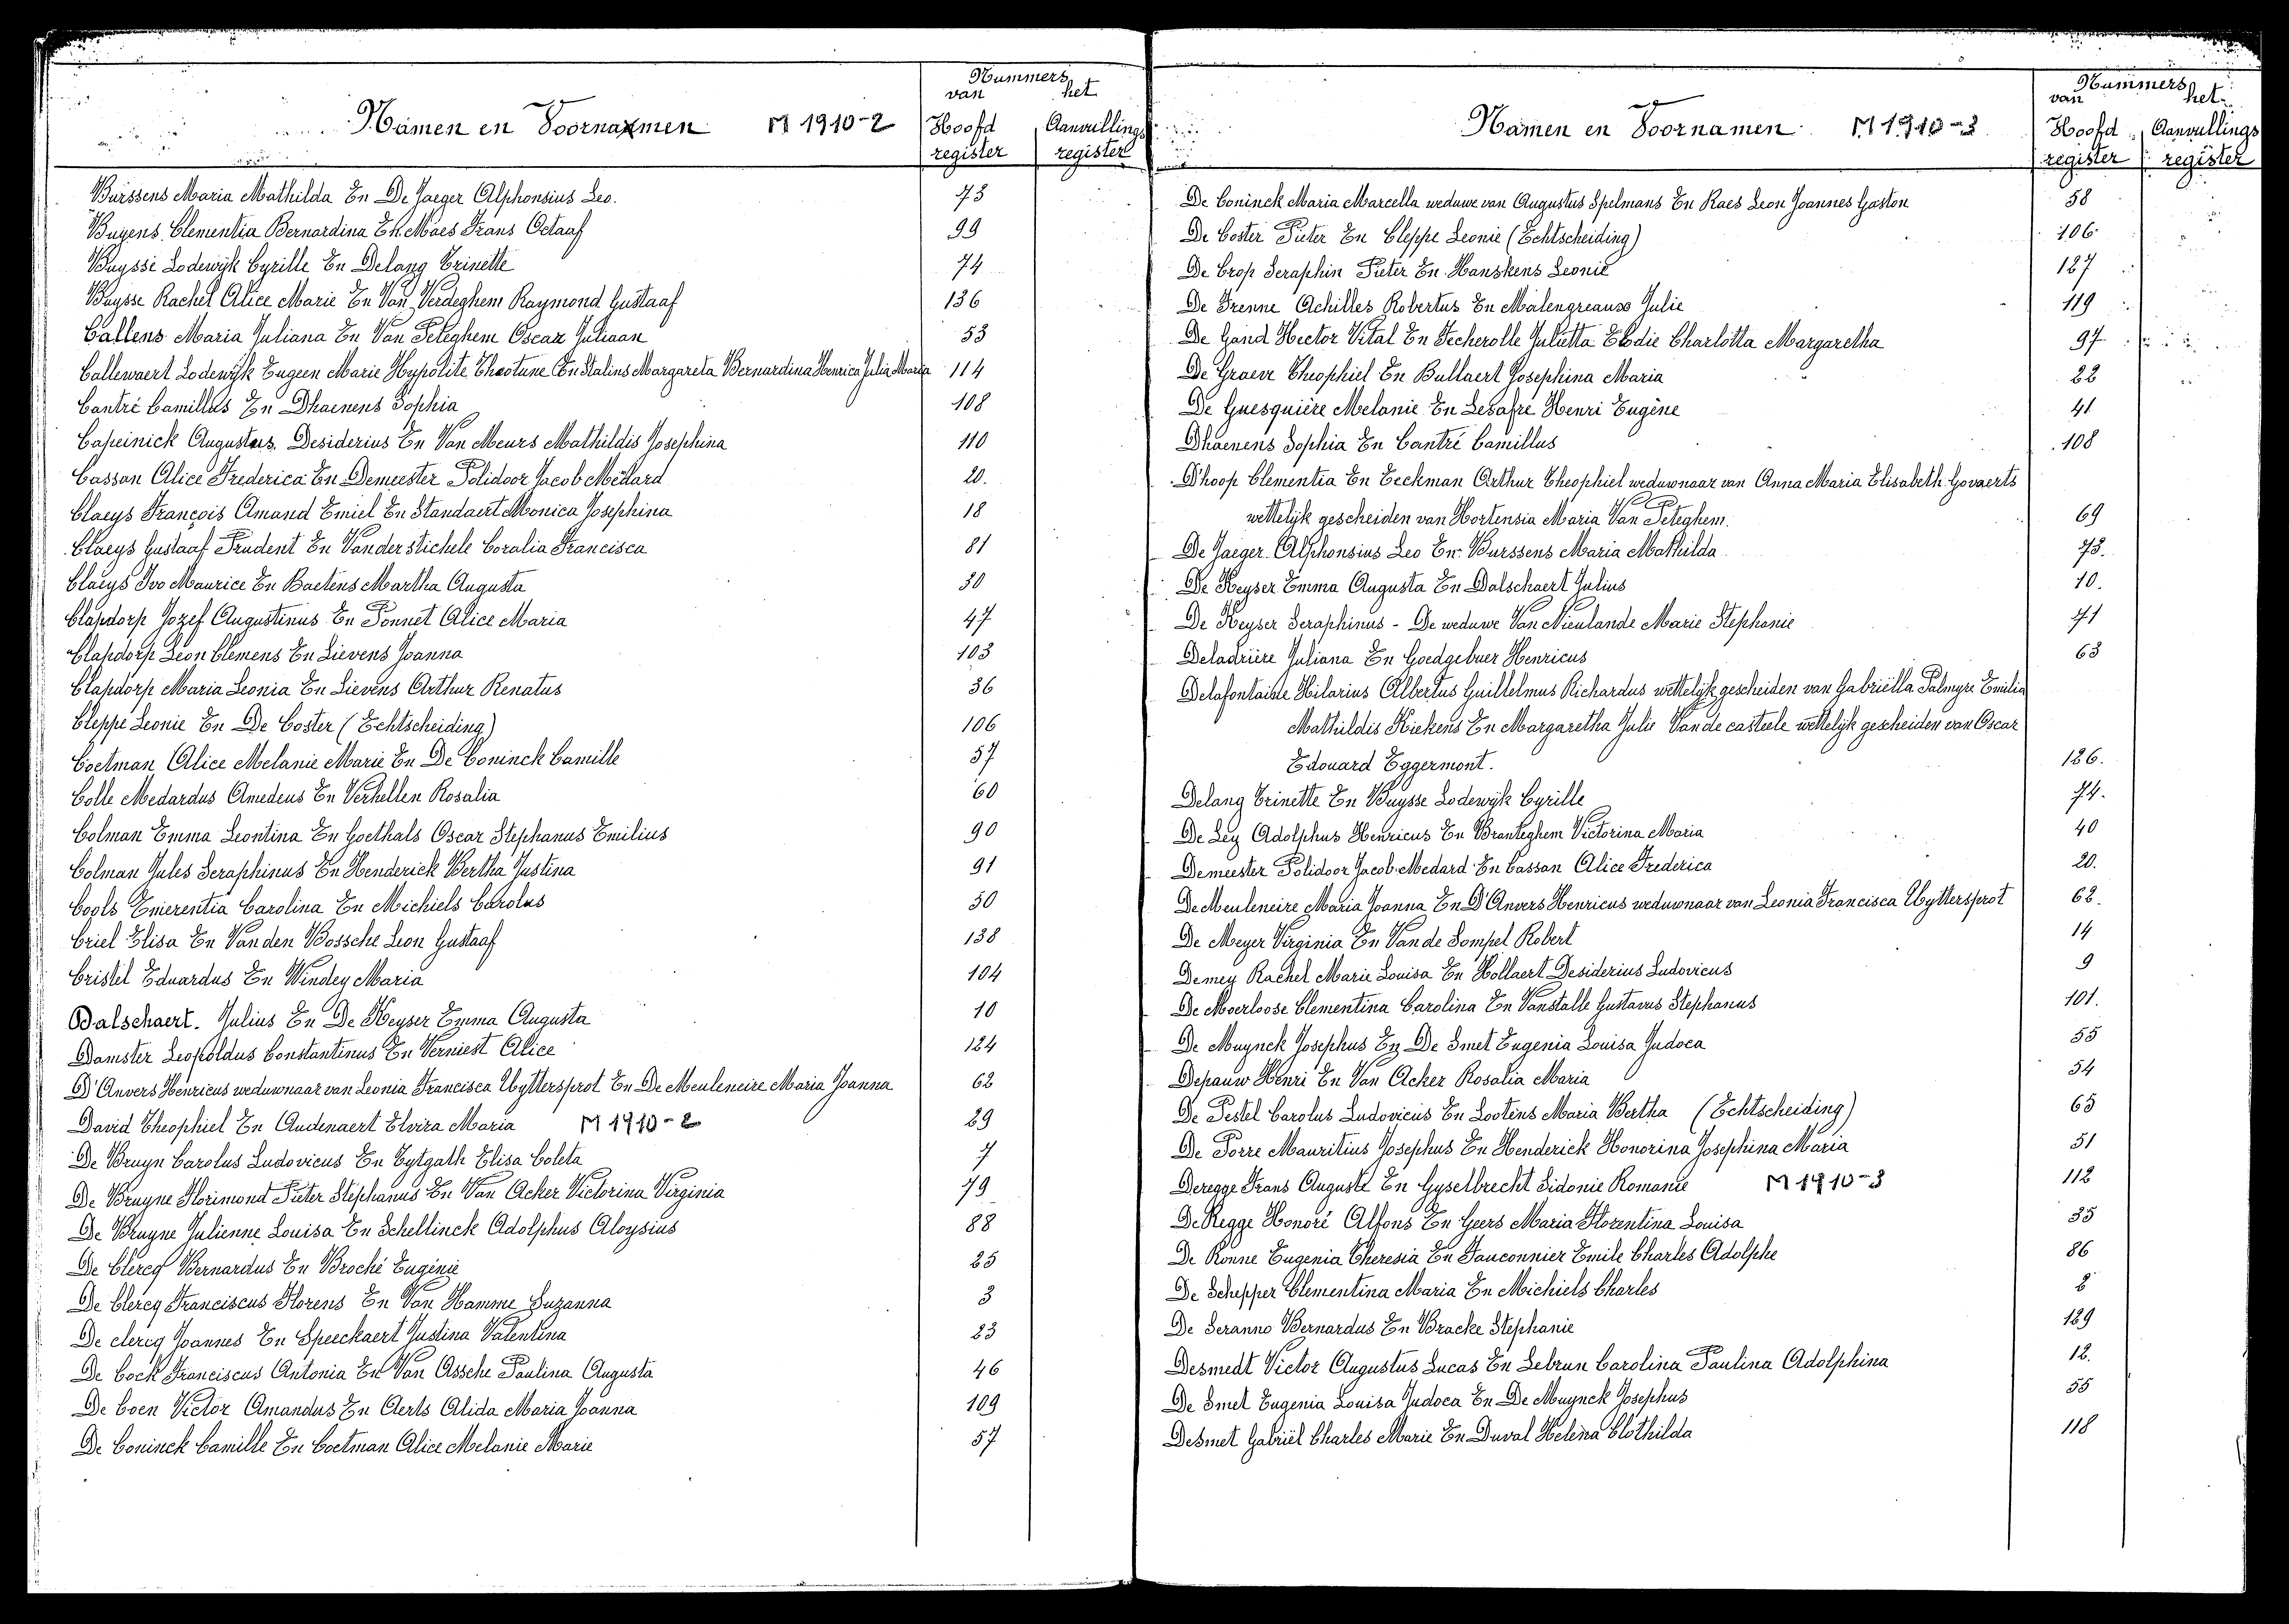 Namen en Voornamen M 1910-2
Nummers
van het
Hoofd register Aanvullings register
Burssens Maria Mathilda En De Jaeger Alphonsius Leo. 73
Buyens Clementia Bernardina En Maes Frans Octaaf 99
Buysse Lodewijk Cyrille En Delang Trinette 74
Buysse Rachel Alice Marie En Van Verdeghem Raymond Gustaaf 136
Callens Maria Juliana En Van Peteghem Oscar Juliaan 53
Callewaert Lodewijk Eugeen Marie Hypolite En Stalins Margareta Bernardina Henrica Julia Maria 114
Cantré Camillus En Dhaenens Sophia 108
Capeinick Augustus Desiderius En Van Meurs Mathildis Josephina 110
Cassan Alice Frederica En Demeester Polidoor Jacob Medard 20.
Claeys François Amand Emiel En Standaert Monica Josephina 18
Claeys Gustaaf Prudent En Vanderstichele Coralia Francisca 81
Claeys Ivo Maurice En Baetens Martha Augusta 30
Clapdorp Jozef Augustinus En Ponnet Alice Maria 47
Clapdorp Leon Clemens En Lievens Joanna 103
Clapdorp Maria Leonia En Lievens Arthur Renatus 36
Cleppe Leonie En De Coster (Echtscheiding) 106
Coetman Alice Melanie Marie En De Coninck Camille 57
Colle Medardus Amedeus En Verhellen Rosalia 60
Colman Emma Leontina En Goethals Oscar Stephanus Emilius 90
Colman Jules Seraphinus En Henderick Bertha Justina 91
Cools Emerentia Carolina En Michiels Carolus 50
Criel Elisa En Vanden Bossche Leon Gustaaf 138
Cristel Eduardus En Windey Maria 104
Dalschaert. Julius En De Keyser Emma Augusta 10
Damster Leopoldus Constantinus En Verniest Alice 124
D'Anvers Henricus weduwnaar van Leonia Francisca Uyttersprot En De Meuleneire Maria Joanna 62
David Theophiel En Audenaert Elvira Maria M 1910-2 29
De Bruyn Carolus Ludovicus En Eytgath Elisa Coleta 7
De Bruyne Florimond Pieter Stephanus En Van Acker Victorina Virginia 79
De Bruyne Julienne Louisa En Schellinck Adolphus Aloysius 88
De Clercq Bernardus En Broché Eugenie 25
De Clercq Franciscus Florens En Van Hamme Suzanna 3
De clercq Joannes En Speeckaert Justina Valentina 23
De Cock Franciscus Antonia En Van Assche Paulina Augusta 46
De Coen Victor Amandus En Aerts Alida Maria Joanna 109
De Coninck Camille En Coetman Alice Melanie Marie 57
Namen en Voornamen M 1910-3
Nummers
van het
Hoofd register Aanvullings register
De Coninck Maria Marcella weduwe van Augustus Spelmans En Raes Leon Joannes Gaston 58
De Coster Pieter En Cleppe Leonie (Echtscheiding) 106
De Crop Seraphin Pieter En Hanskens Leonie 127
De Frenne Achilles Robertus En Malengreaux Julie 119
De Gand Hector Vital En Fecherolle Julietta Elodie Charlotta Margaretha 97
De Graeve Theophiel En Bullaert Josephina Maria 22
De Guesquière Melanie En Lesafre Henri Eugène 41
Dhaenens Sophia En Cantré Camillus 108
D'hoop Clementia En Eeckman Arthur Theophiel weduwnaar van Anna Maria Elisabeth Govaerts
wettelijk gescheiden van Hortensia Maria Van Peteghem. 69
De Jaeger Alphonsius Leo En Burssens Maria Mathilda 73.
De Keyser Emma Augusta En Dalschaert Julius 10.
De Keyser Seraphinus - De weduwe Van Nieulande Marie Stephanie 71
Deladrière Juliana En Goedgebuer Henricus 63
Delafontaine Hilarius Albertus Guillelmus Richardus wettelijk gescheiden van Gabriëlla Palmyre Emilia
Mathildis Kiekens En Margaretha Julie Vandecasteele wettelijk gescheiden van Oscar
Edouard Eggermont. 126.
Delang Trinette En Buysse Lodewijk Cyrille 74.
De Ley Adolphus Henricus En Branteghem Victorina Maria 40
Demeester Polidoor Jacob Medard En Cassan Alice Frederica 20.
De Meuleneire Maria Joanna En D'Anvers Henricus weduwnaar van Leonia Francisca Uyttersprot 62.
De Meyer Virginia En Van de Sompel Robert 14
Demey Rachel Marie Louisa En Hollaert Desiderius Ludovicus 9
De Moerloose Clementina Carolina En Vanstalle Gustavus Stephanus 101.
De Muynck Josephus En De Smet Eugenia Louisa Judoca 55
Depauw Henri En Van Acker Rosalia Maria 54
De Pestel Carolus Ludovicus En Lootens Maria Bertha (Echtscheiding) 65
De Porre Mauritius Josephus En Henderick Honorina Josephina Maria 51
Deregge Frans Auguste En Gyselbrecht Sidonie Romanie M 1910-3 112
De Regge Honoré Alfons En Geers Maria Florentina Louisa 35
De Ronne Eugenia Theresia En Fauconnier Emile Charles Adolphe 86
De Schepper Clementina Maria En Michiels Charles 2
De Seranno Bernardus En Bracke Stephanie 129
Desmedt Victor Augustus Lucas En Lebrun Carolina Paulina Adolphina 12.
De Smet Eugenia Louisa Judoca En De Muynck Josephus 55
Desmet Gabriël Charles Marie En Duval Helena Clothilda 118